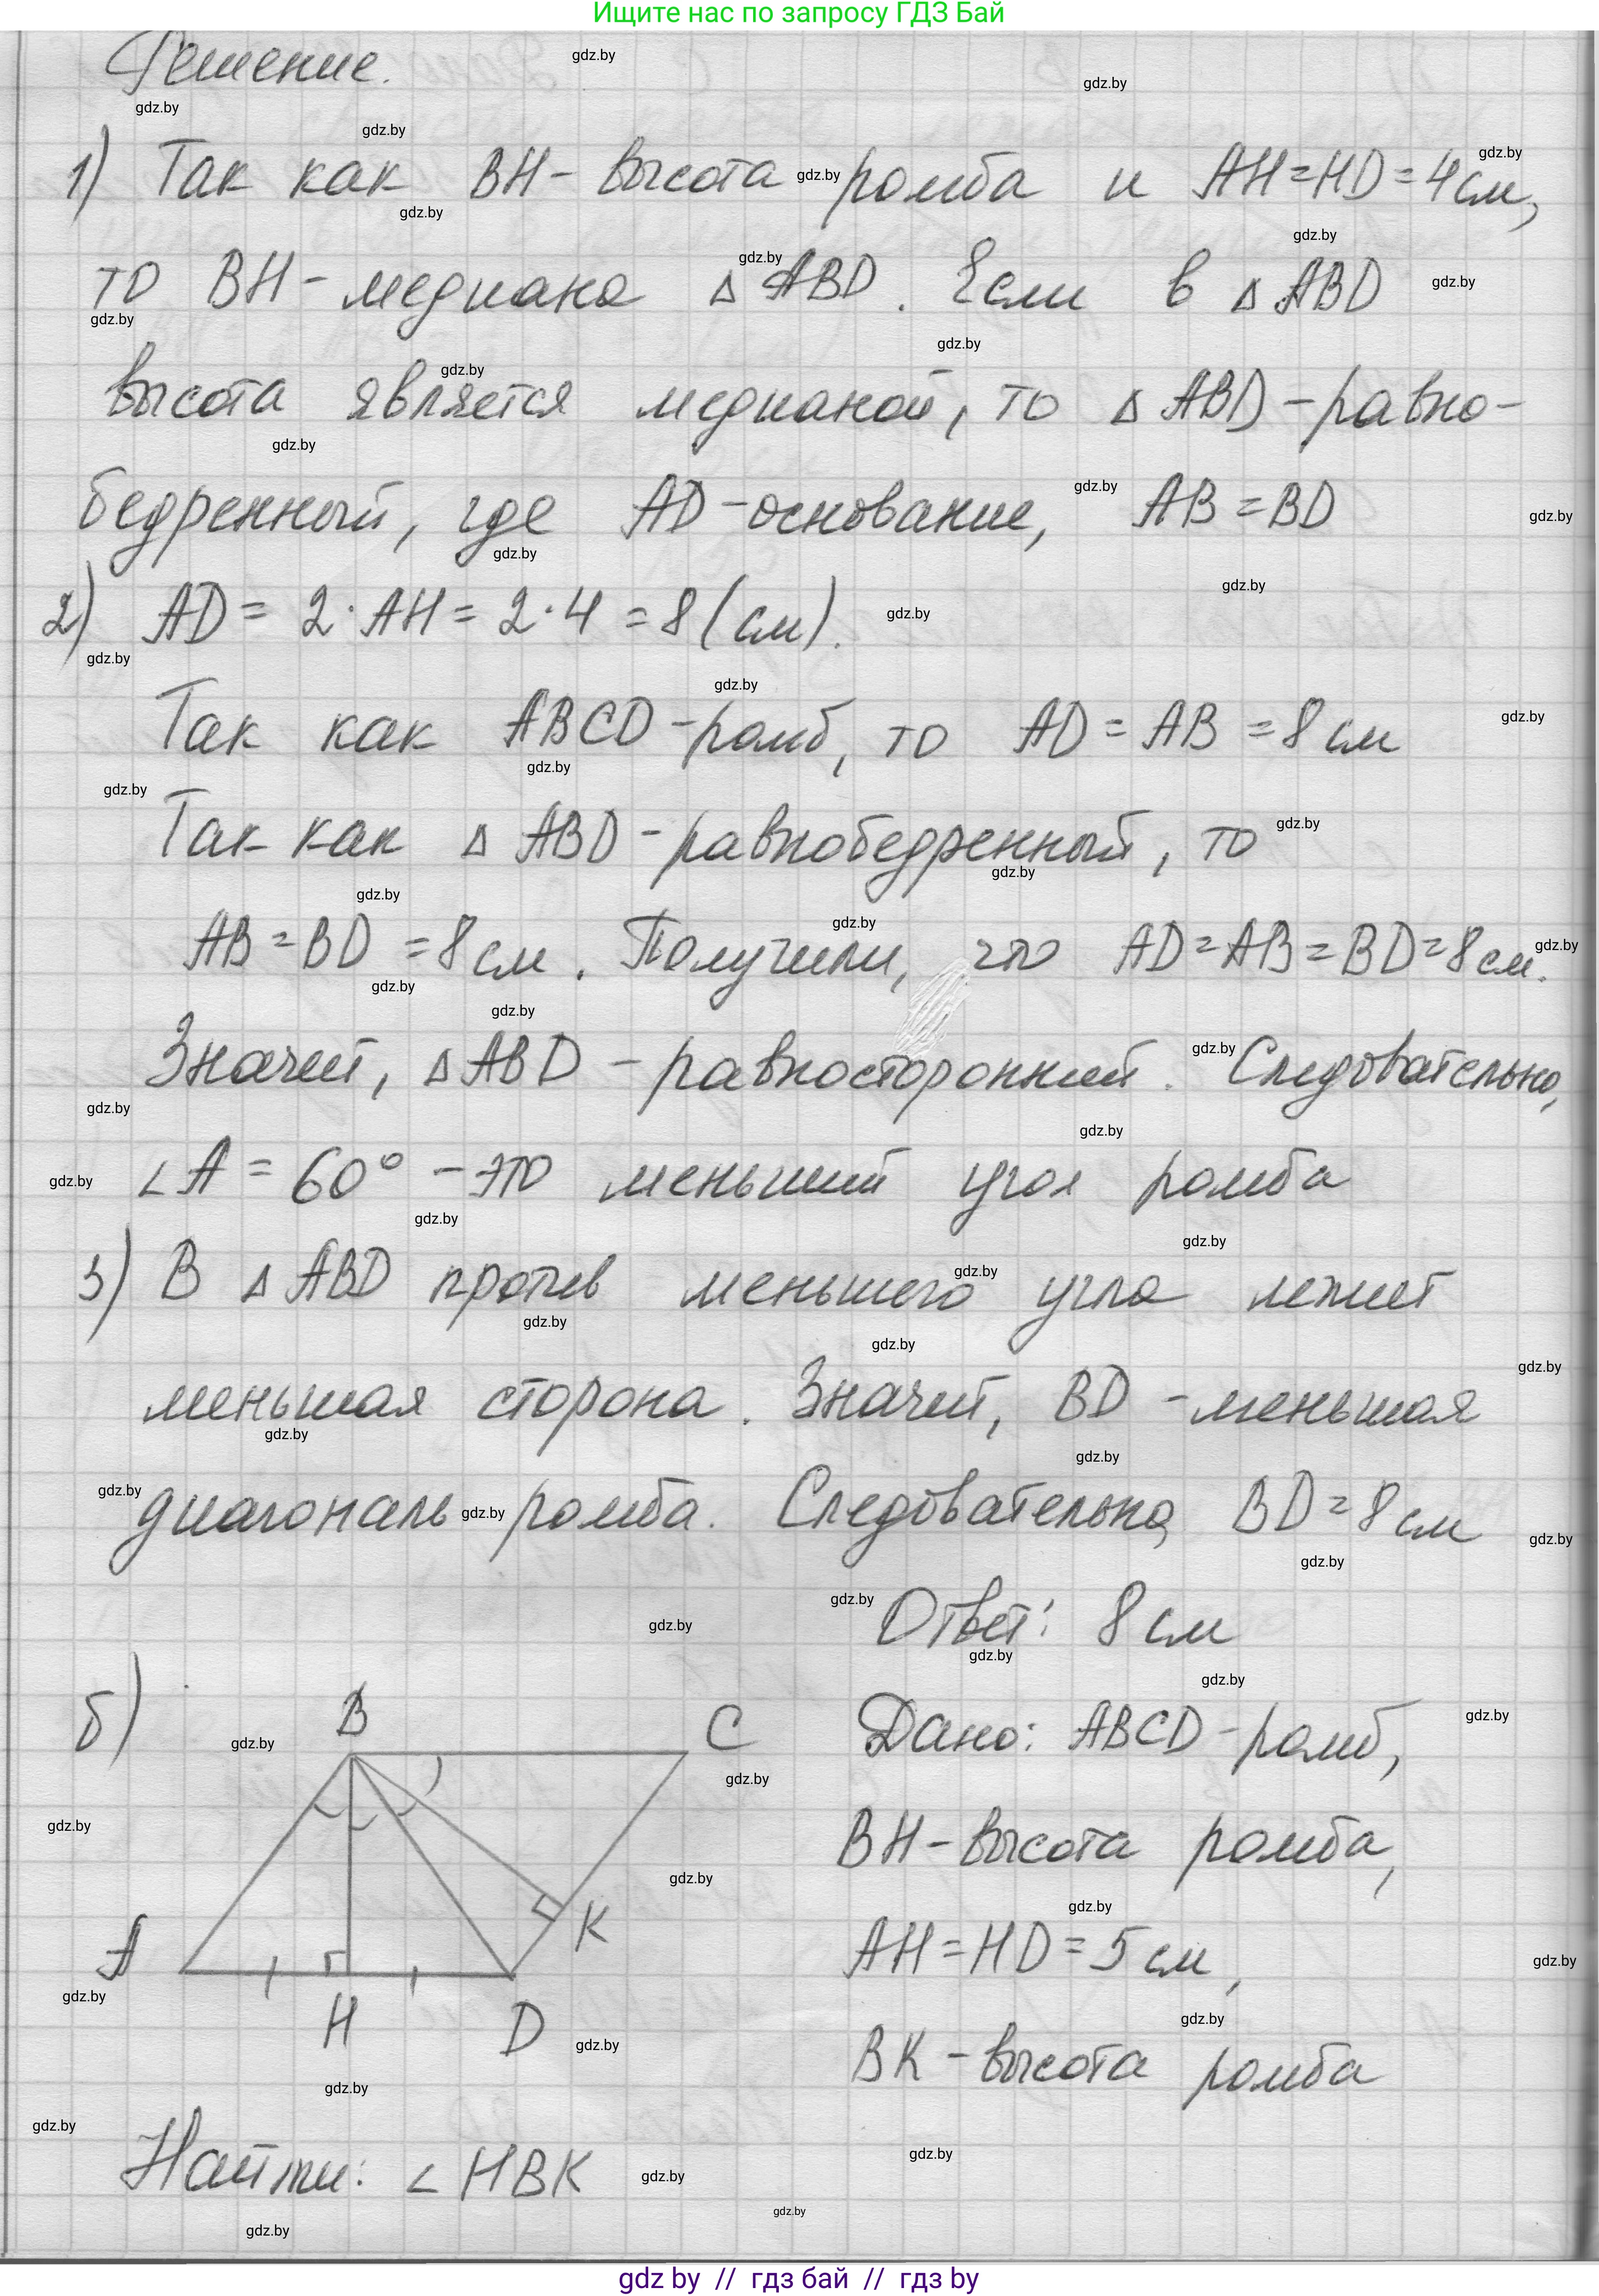 Ищите нас по запросу ГДЗ Бай
Решение.
1) Так как BH - высота ромба и AH = HD = 4 см,
то BH - медиана △ ABD. Если в △ ABD
высота является медианой, то △ ABD - равно-
бедренный, где AD - основание, AB = BD
2) AD = 2 · AH = 2 · 4 = 8 (см).
Так как ABCD - ромб, то AD = AB = 8 см
Так как △ ABD - равнобедренный, то
AB = BD = 8 см. Получили, что AD = AB = BD = 8 см.
Значит, △ ABD - равносторонний. Следовательно,
∠A = 60° - это меньший угол ромба
3) В △ ABD против меньшего угла лежит
меньшая сторона. Значит, BD - меньшая
диагональ ромба. Следовательно, BD = 8 см
Ответ: 8 см
б)
B
C
K
A
H
D
Дано: ABCD - ромб,
BH - высота ромба,
AH = HD = 5 см,
BK - высота ромба
Найти: ∠ HBK
gdz by // гдз бай // гдз by